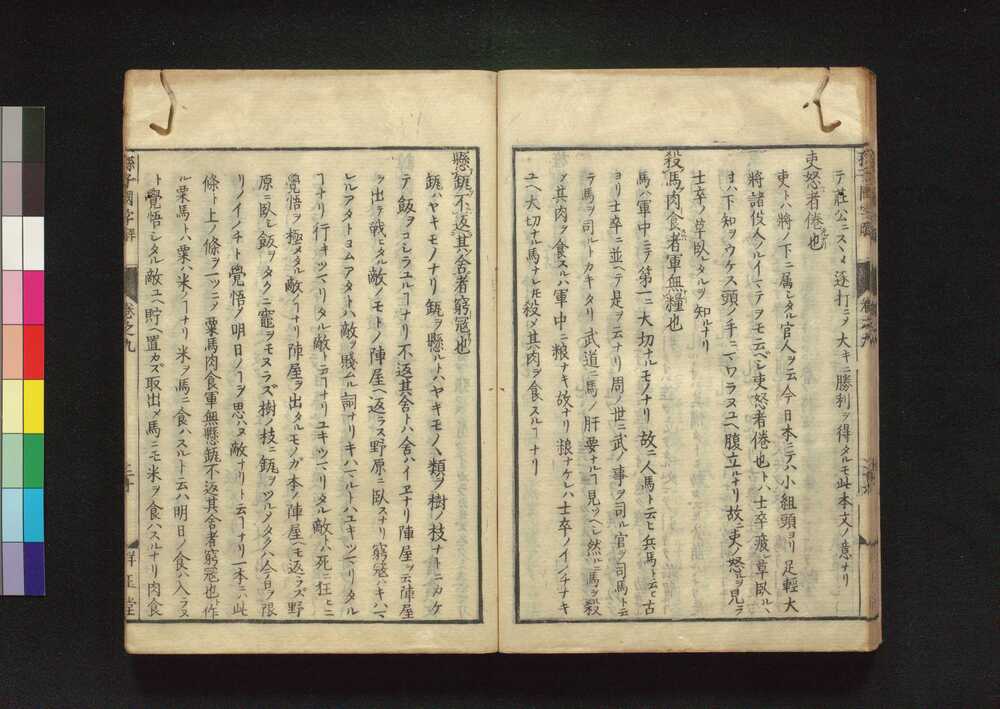 テ莊公ニスヽメ逐打ニヲ大キニ勝利ヲ得タルモ此本文ノ意ナリ
吏怒者倦也
吏トハ將ノ下ニ属シタル官人ヲ云今日本ニテハ小組頭ヨリ足輕大
將諸役人ノルイマテヲモ云ヘシ吏怒者倦也トハ士卒疲レ草臥ルレ
ハ下知ヲウケス頭ノ手ニマワラヌユヘ腹立ルナリ故ニ吏ノ怒ルヲ見テ
士卒ノ草臥レタルヲ知ルナリ
殺馬肉食者軍無糧也
馬ハ軍中ニテ第一ニ大切ナルモノナリ故ニ人馬ト云ヒ兵馬ト云ヒ古
ヨリ士卒ニ並ヘテ是ヲ云ナリ周ノ世ニ武ノ事ヲ司ル官ヲ司馬ト云
ラ馬ヲ司ルトカキタリ武道ニ馬ノ肝要ナルヿ見ツヘシ然ルニ馬ヲ殺
メ其肉ヲ食スルハ軍中ニ粮ナキ故ナリ粮ナケレハ士卒ノイノチナキ
ユヘ大切ナル馬ナレ𪜈殺メ其肉ヲ食スルヿナリ
懸缻不返其舍者窮寇也
缻ハヤキモノナリ缻ヲ懸ルトハヤキモノヽ類ヲ樹ノ枝ナトニカケ
テ飯ヲコシラユルヿナリ不返其舍トハ舍ハイヱナリ陣屋ヲ云陣屋
ヲ出テ戰ヒタル敵ノモトノ陣屋ヘ返ラス野原ニ臥スナリ窮寇ハキハマ
レルアタトヨムアタトハ敵ヲ賤ムル詞ナリキハマルトハユキツマリタル
ヿナリ行キツマリタル敵ト云ヿナリユキツマリタル敵ハ死ニ狂ヒニ
覺悟ヲ極メタル敵ノヿナリ陣屋ヲ出タルモノガ本ノ陣屋ヘモ返ラズ野
原ニ臥シ飯ヲタクニ竈ヲモヌラズ樹ノ枝ニ缻ヲツルノタクハ今日ヲ限
リノイノチト覺悟ノ明日ノヿヲ思ハヌ敵ナリト云ヿナリ一本ニハ此
條ト上ノ條ヲ一ツニノ粟馬肉食軍無懸缻不返其舍者窮寇也ト作
ル粟馬トハ粟ハ米ノヿナリ米ヲ馬ニ食ハスルト云ハ明日ノ食ハ入ラヌ
ト覺悟シタル敵ユヘ貯ヘ置カズ取出メ馬ニモ米ヲ食ハスルナリ肉食
孫子國字解
卷之九
二十
群玉堂